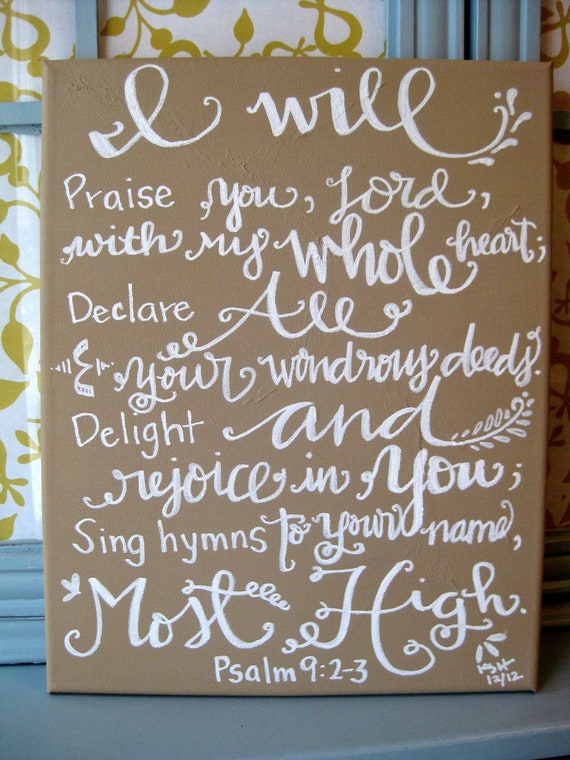 I will
Praise you, Lord,
with my whole heart;
Declare All
& your wondrous deeds.
Delight and
rejoice in You;
Sing hymns to your name,
Most High.
Psalm 9:2-3
12/12